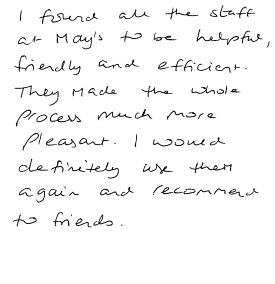 I found all the staff
at May's to be helpful,
friendly and efficient.
They made the whole
process much more
pleasant. I would
definitely use them
again and recommend
to friends.